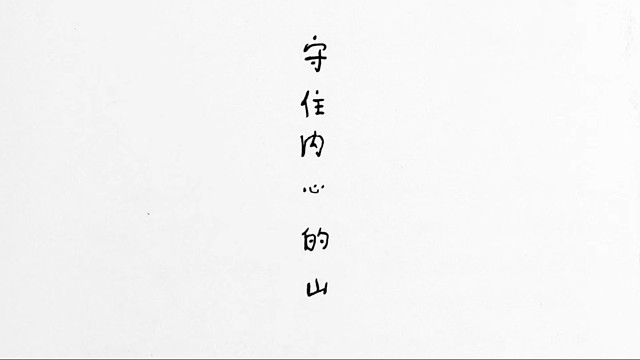 守住内心的山